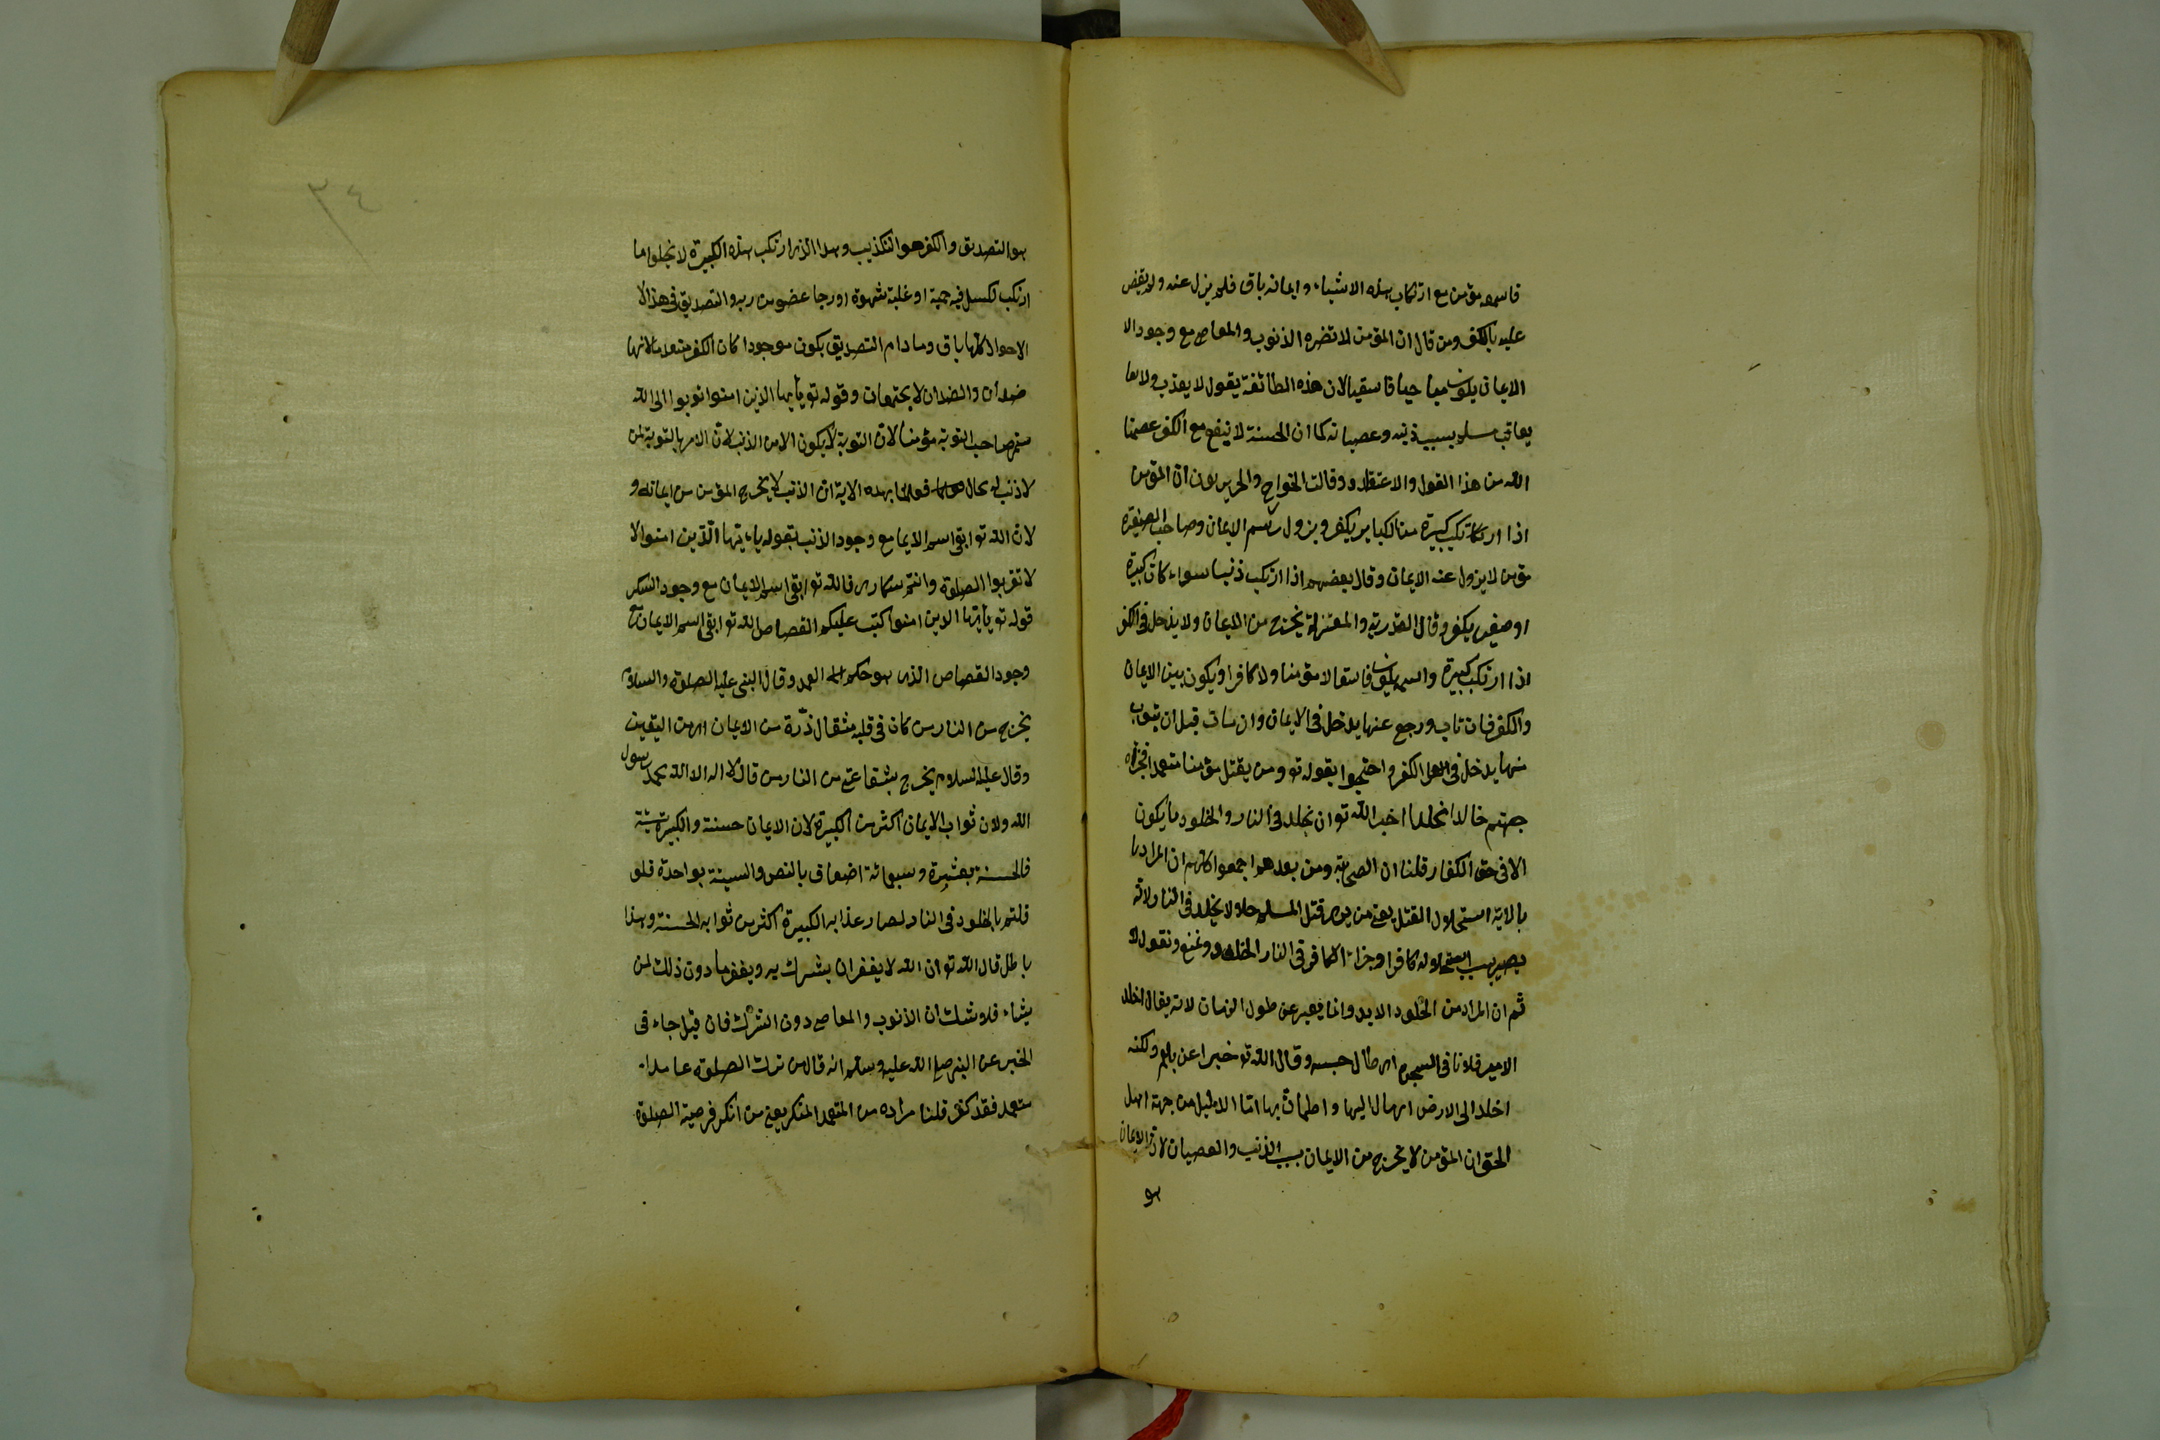 فاسمه مؤمن مع ارتكاب هذه الاشياء و ايمانه باق فلم يزل عنه ولا يقضى
عليه بالكفر ومن قال ان المؤمن لا تضره الذنوب والمعاصى مع وجود الا
الايمان يكون مباحيا فاسقيا لان هذه الطائفة يقول لا يعذب ولا يعا
يعاقب مسلم بسبب ذنبه وعصيانه كما ان الحسنة لا ينفع مع الكفر عصمنا
الله من هذا القول والاعتقاد وقالت الخوارج والحروريون ان المؤمن
اذا ارتكب كبيرة من الكبائر يكفر و يزول اسم الايمان وصاحب الصغيرة
مؤمن لا يزول عنه الايمان وقال بعضهم اذا ارتكب ذنبا سواء كان كبيرة
او صغيرة يكفر وقال القدرية والمعتزلة يخرج من الايمان ولا يدخل فى الكفر
اذا ارتكب كبيرة واسمه يكون فاسقا لا مؤمنا ولا كافرا ويكون بين الايمان
والكفر فان تاب ورجع عنها يدخل فى الايمان وان مات قبل ان يتوب
منها يدخل فى الكفر و احتجوا بقوله تع ومن يقتل مؤمنا متعمدا فجزاؤه
جهنم خالدا مخلدا اخبر الله تع ان يخلد فى النار والخلود ما يكون
الا فى حق الكفار قلنا ان الصحابة ومن بعدهم اجمعوا كلهم ان المراد بها
بالاية استحلال القتل يعنى من يرى قتل المسلم حلالا يخلد فى النار لانه
يصير بسبب استحلاله كافرا وجزاء الكافر فى النار الخلود ونمنع ونقول لا
ثم ان المراد من الخلود الابد وانما يعبر عن طول الزمان لانه يقال اخلد
الامير فلانا فى السجن اى طال حبسه وقال الله تع خبرا عن بلعم ولكنه
اخلد الى الارض اى مال اليها و اطمأن بها اما الدليل من جهة اهل
الحق ان المؤمن لا يخرج من الايمان بسبب الذنب والعصيان لان الايمان
هو
٣٤
هو التصديق والكفر هو التكذيب وهذا الذى ارتكب هذه الكبيرة لا يخلو اما
ارتكب لكسل فيه حمية او غلبة شهوة او رجا عفو من ربه والتصديق فى هذه الا
الاحوال كلها باق وما دام التصديق يكون موجودا كان الكفر منعدما لانها
ضدان والضدان لا يجتمعان وقوله تع يأيها الذين امنوا توبوا الى الله
سمى صاحب التوبة مؤمنا لان التوبة لا يكون الا من الذنب لان الامر بالتوبة لمن
لا ذنب له محال فعلمنا بهذه الاية ان الذنب لا يخرج المؤمن من ايمانه و
لان الله تع ابقى اسم الايمان مع وجود الذنب بقوله يا ايها الذين امنوا لا
لا تقربوا الصلوة وانتم سكارى فالله تع ابقى اسم الايمان مع وجود السكر
قوله تع يأيها الذين امنوا كتب عليكم القصاص الله تع ابقى اسم الايمان مع
وجود القصاص الذى هو حكم العمد وقال النبى عليه الصلوة والسلام
يخرج من النار من كان فى قلبه مثقال ذرة من الايمان اى من اليقين
وقال عليه السلام يخرج بشفاعتى من النار من قال لا اله الا الله محمد رسول
الله ولان ثواب الايمان اكثر من الكبيرة لان الايمان حسنة والكبيرة سيئة
فالحسنة بعشرة و سبعمائة اضعاف بالنص والسيئة بواحدة فلو
قلتم بالخلود فى النار لصار عذابه الكبيرة اكثر من ثوابه الحسنة وهذا
باطل قال الله تع ان الله لا يغفر ان يشرك به ويغفر ما دون ذلك لمن
يشاء فلا شك ان الذنوب والمعاصى دون الشرك فان قيل جاء فى
الخبر عن النبى صلى الله عليه وسلم انه قال من ترك الصلوة عامدا
متعمد فقد كفر قلنا مراده من المتعمد المنكر يعنى من انكر فرضية الصلوة